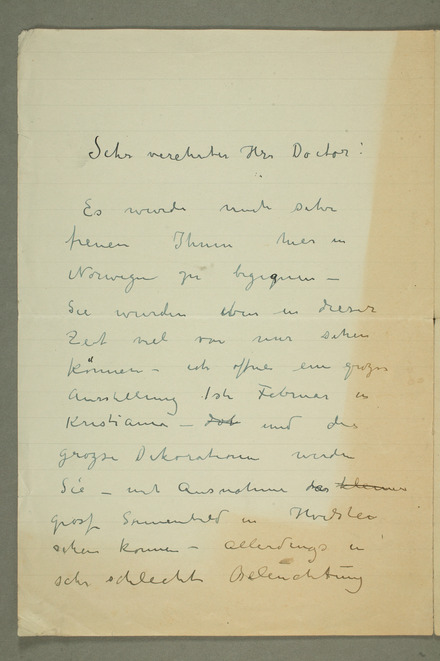 Sehr verehrter Herr Doctor!
Es wurde mich sehr
freuen Ihnen hier in
Norwegen zu begegnen –
Sie wurden eben in dieser
Zeit viel von mir sehen
können – ich offne ein grosse
Ausstellung 1ste Februar in
Kristiania – dort und die
grosse Dekorationen werden
Sie – mit Ausnahme das kleines
grosse Sonnenbild in
sehen konnen – allerdings in
sehr schlecht Beleuchtung